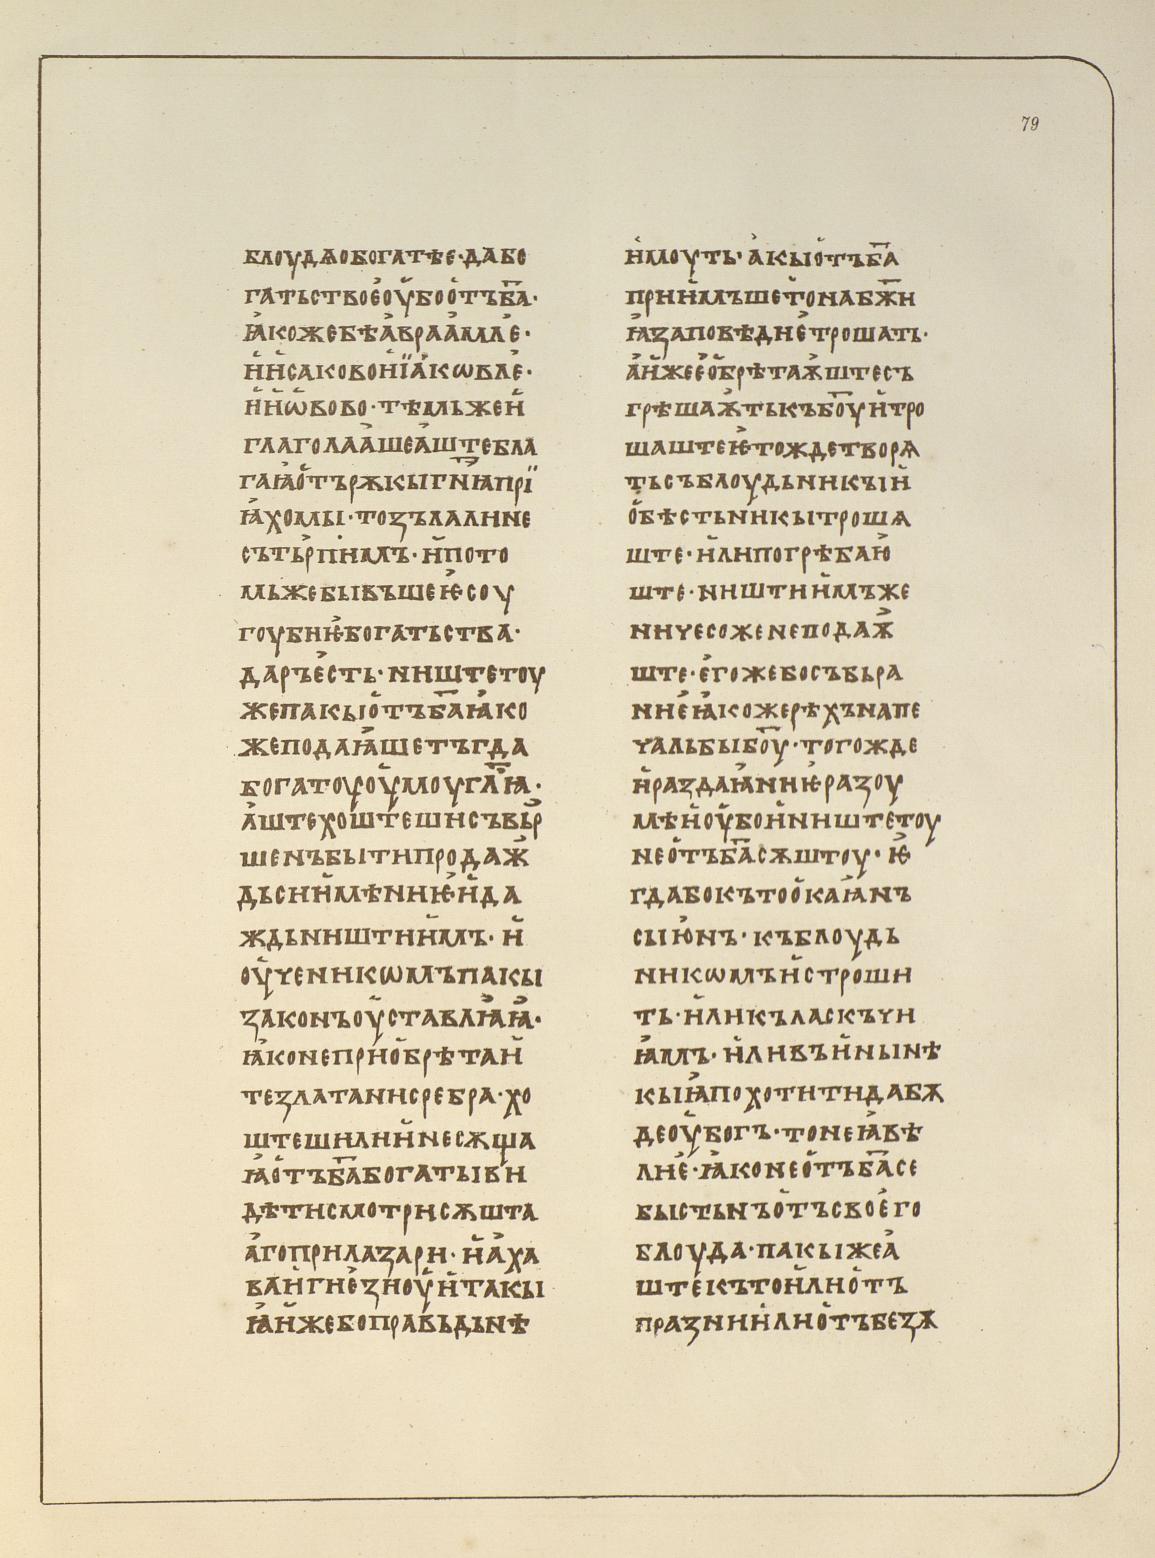 79
блоудѧобогатѣе·дабо
гатьствоеоубоотъба·
ꙗкожебѣавраамле·
ниісаковониіаковле·
ниѡвово·тѣмьжеи
глаголаашеаштебла
гаꙗотърѫкыгнꙗпрї
ꙗхомы·тозълалине
сътьрпимъ·ипото
мьжебывъшеѥсоу
гоубиѥбогатьства·
даръесть·ништетоу
жепакыотъбаꙗко
жеподаꙗшетъгда
богатоуоумоуглꙗ·
аштехоштешисъвьр
шенъбытипродаж
дьсиимѣниѥида
ждьништиимъ·и
оученикѡмъпакы
законъоуставлꙗꙗ·
ꙗконеприобрѣтаи
тезлатанисребра·хо
штешилиинесѫща
ꙗотъбабогатыви
дѣтисмотрисѫшта
агоприлазари·иаха
ваигнезноуитакы
ꙗижебоправьдьнѣ
имоуть·акыотъба
приимъшетонабжи
ꙗзаповѣдиетрошать·
аижееобрѣтаѭштесъ
грѣшаѭтькъбоуитро
шаштеѥтождетворѧ
тьсъблоудьникъіи
обѣстьникытрошѧ
ште·илипогрѣбаю
ште·ништиимъже
ничесоженеподаѭ
ште·егожебосъбьра
ниеꙗкожерѣхънапе
чальбыбоу·тогожде
ираздаꙗниѥразоу
мѣиоубоиништетоу
неотъбасѫштоу·ѥ
гдабокътоокаꙗнъ
сыюнъ·къблоудь
никѡмъистроши
ть·иликъласкъчи
ꙗмъ·иливъинынѣ
кыꙗпохотитидабѫ
деоубогъ·тонеꙗвѣ
лие·ꙗконеотъбасе
быстьнъотъсвоего
блоуда·пакыжеа
штекътоилиотъ
празниилиотъбезѫ